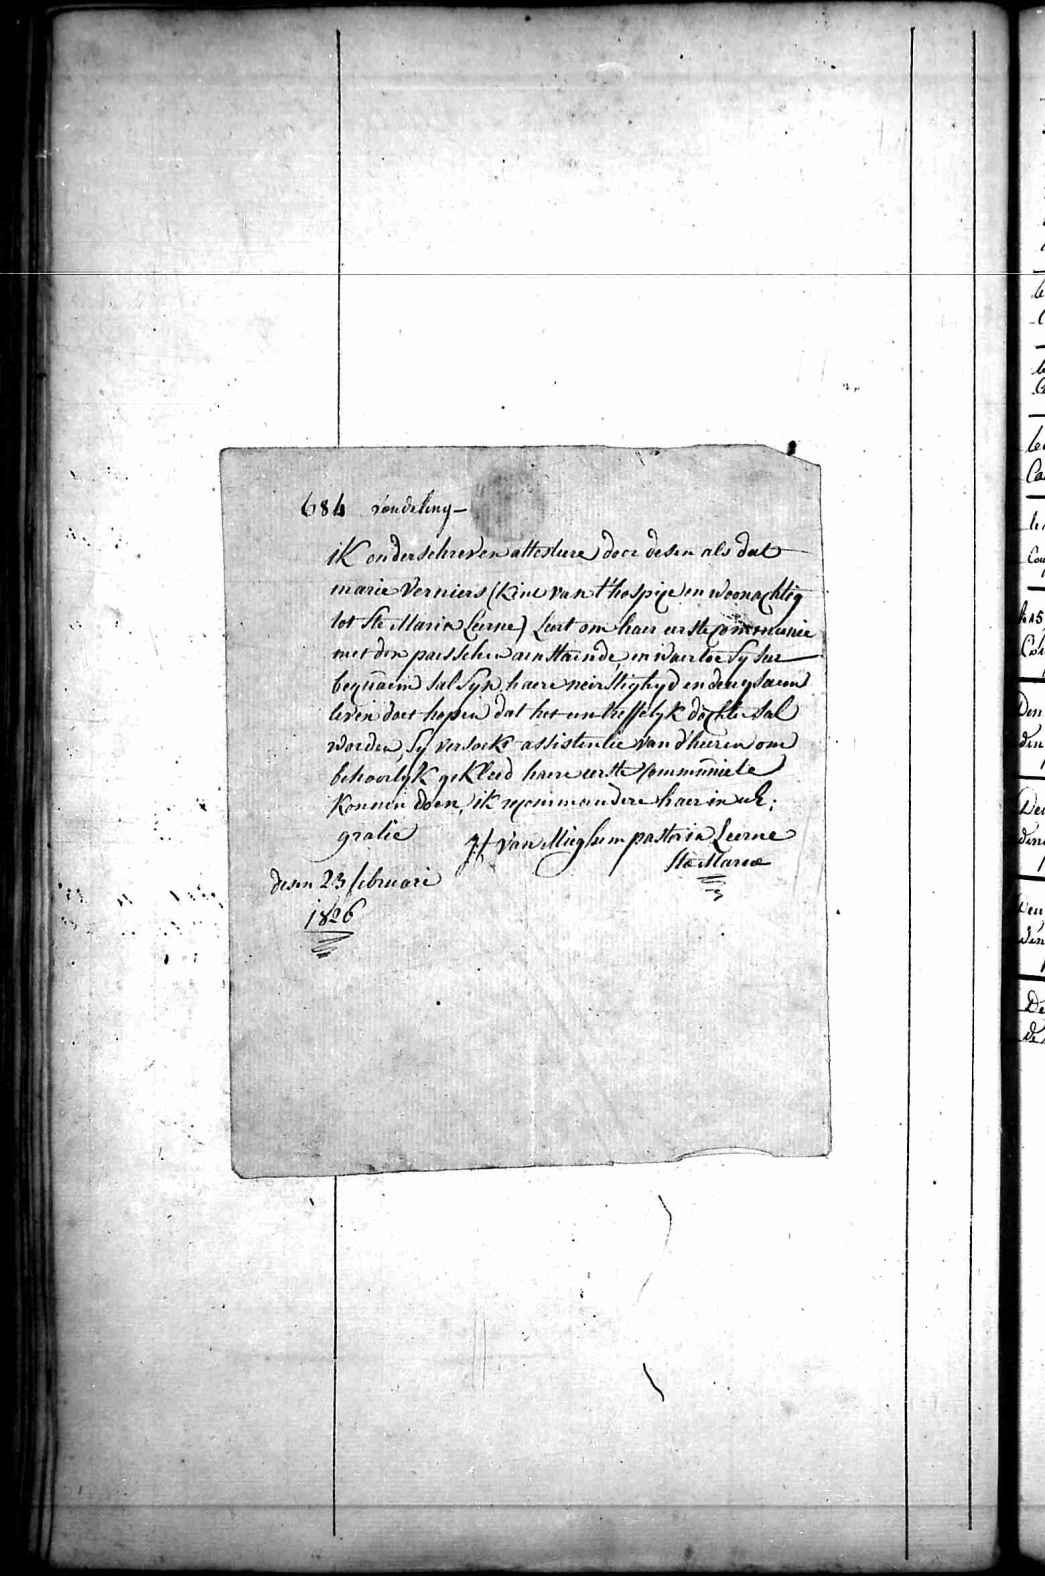 684 vondeling –
ik onderschreven attestere door desen als dat
marie Verniers (kint van t'hospice en woonachtig
tot Ste Maria Leerne) Leert om haer eerste Communie
met den paesschen aenstaende, en waer toe sy seer
bequaem sal syn. haere neirstighyd en deugsaem
leven doet hopen dat het een treffelyk dochter sal
worden, sy versoekt assistentie van d'heeren om
behoorlyk gekleed haere eerste Communiete
konnen doen, ik recommandere haer in ue:
gratie
van Mieghem pastor in Leerne
Stæ Mariæ
desen 23 februari
1826